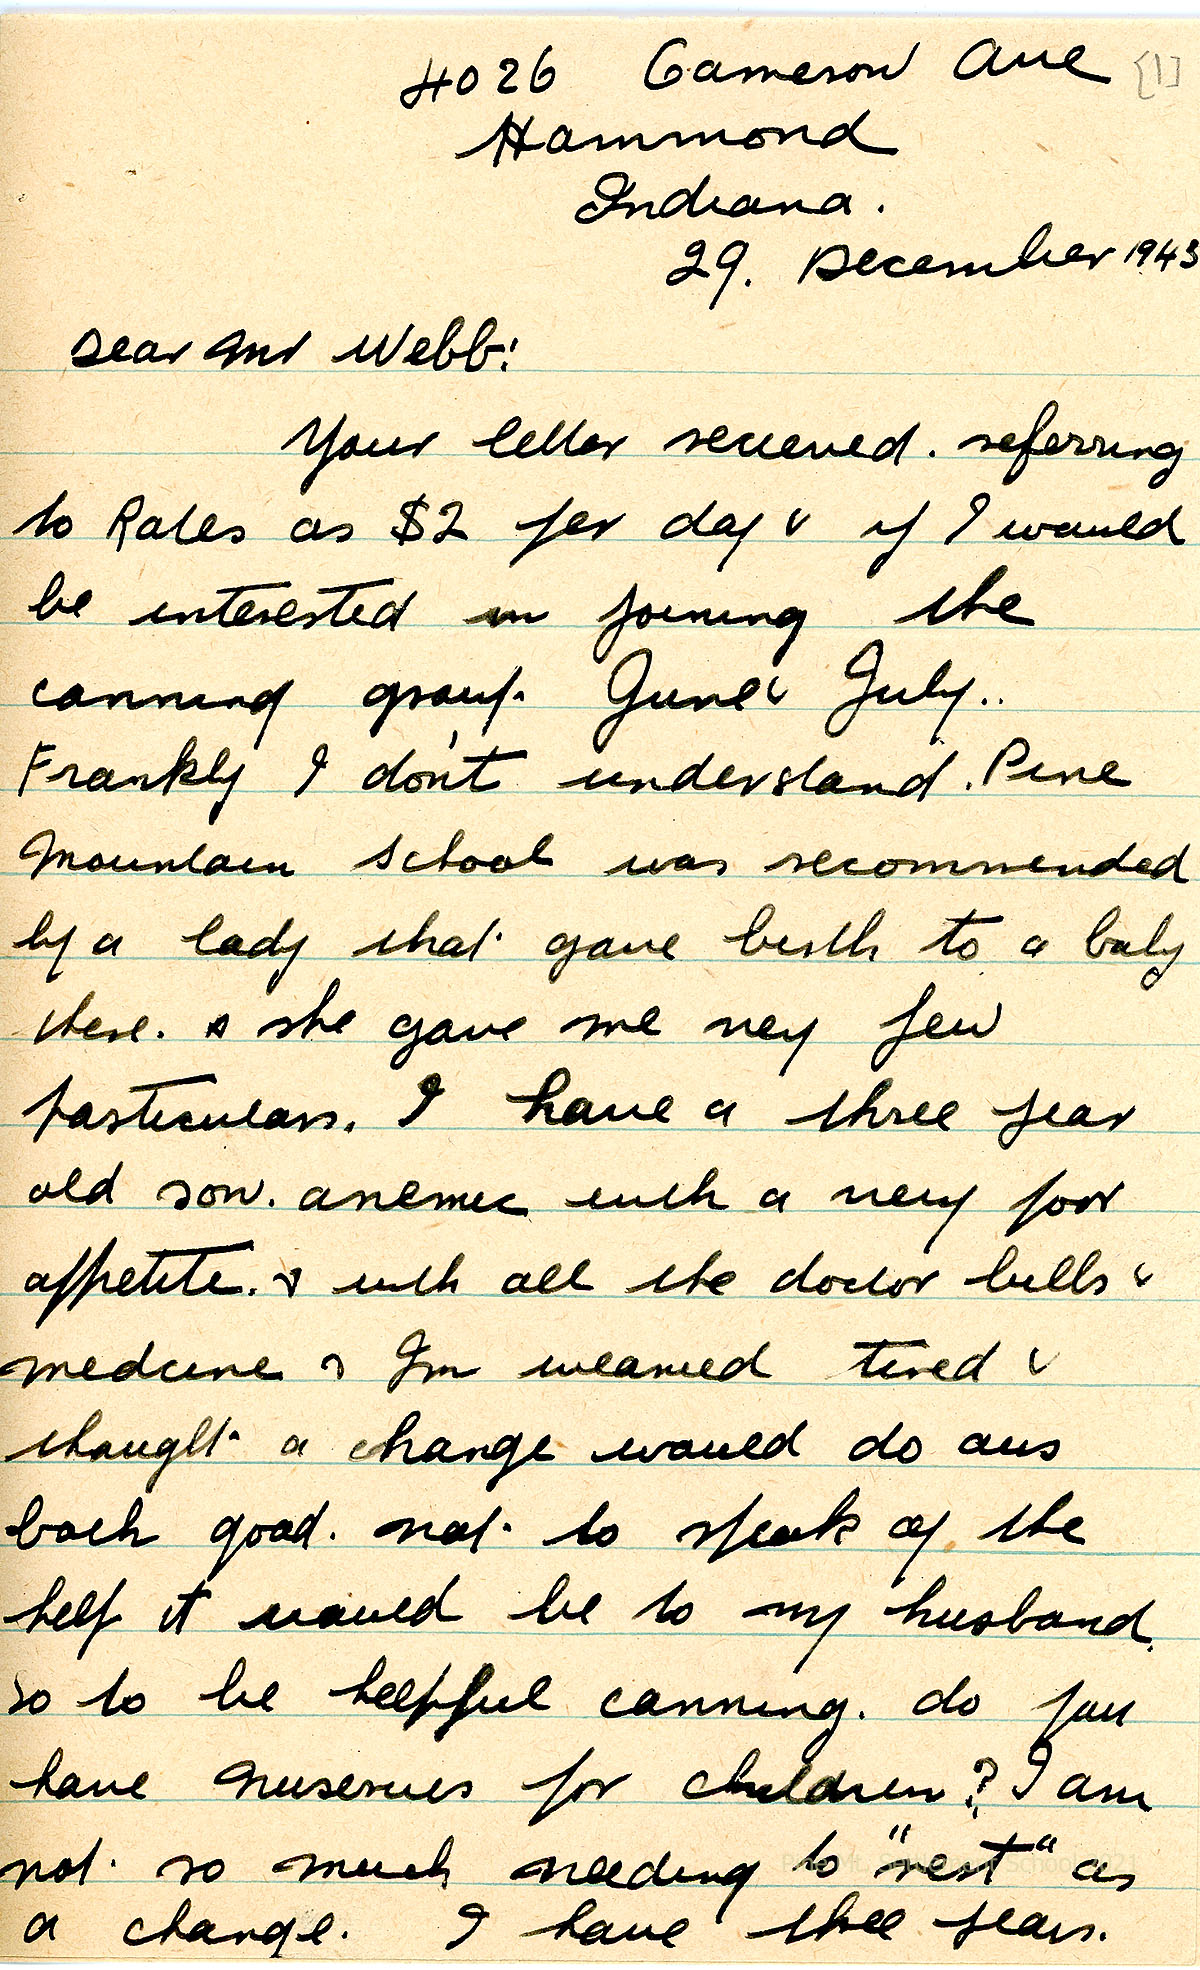 4026 Cameron Ave [1]
Hammond
Indiana.
29. December 1943
Dear Mr Webb:
Your letter recieved. referring
to Rates as $2 per day & if I would
be interested in joining the
canning group. June & July..
Frankly I don't understand. Pine
Mountain School was recommended
by a lady that gave birth to a baby
there. & she gave me very few
particulars. I have a three year
old son. anemic with a very poor
appetite. & with all the doctor bills &
medcine & I'm wearied tired &
thought a change would do ous
both good. not to speak of the
help it would be to my husband.
so to be helpful canning. do you
have nuseries for children? I am
not so much needing to "rest" as
a change. I have three years.